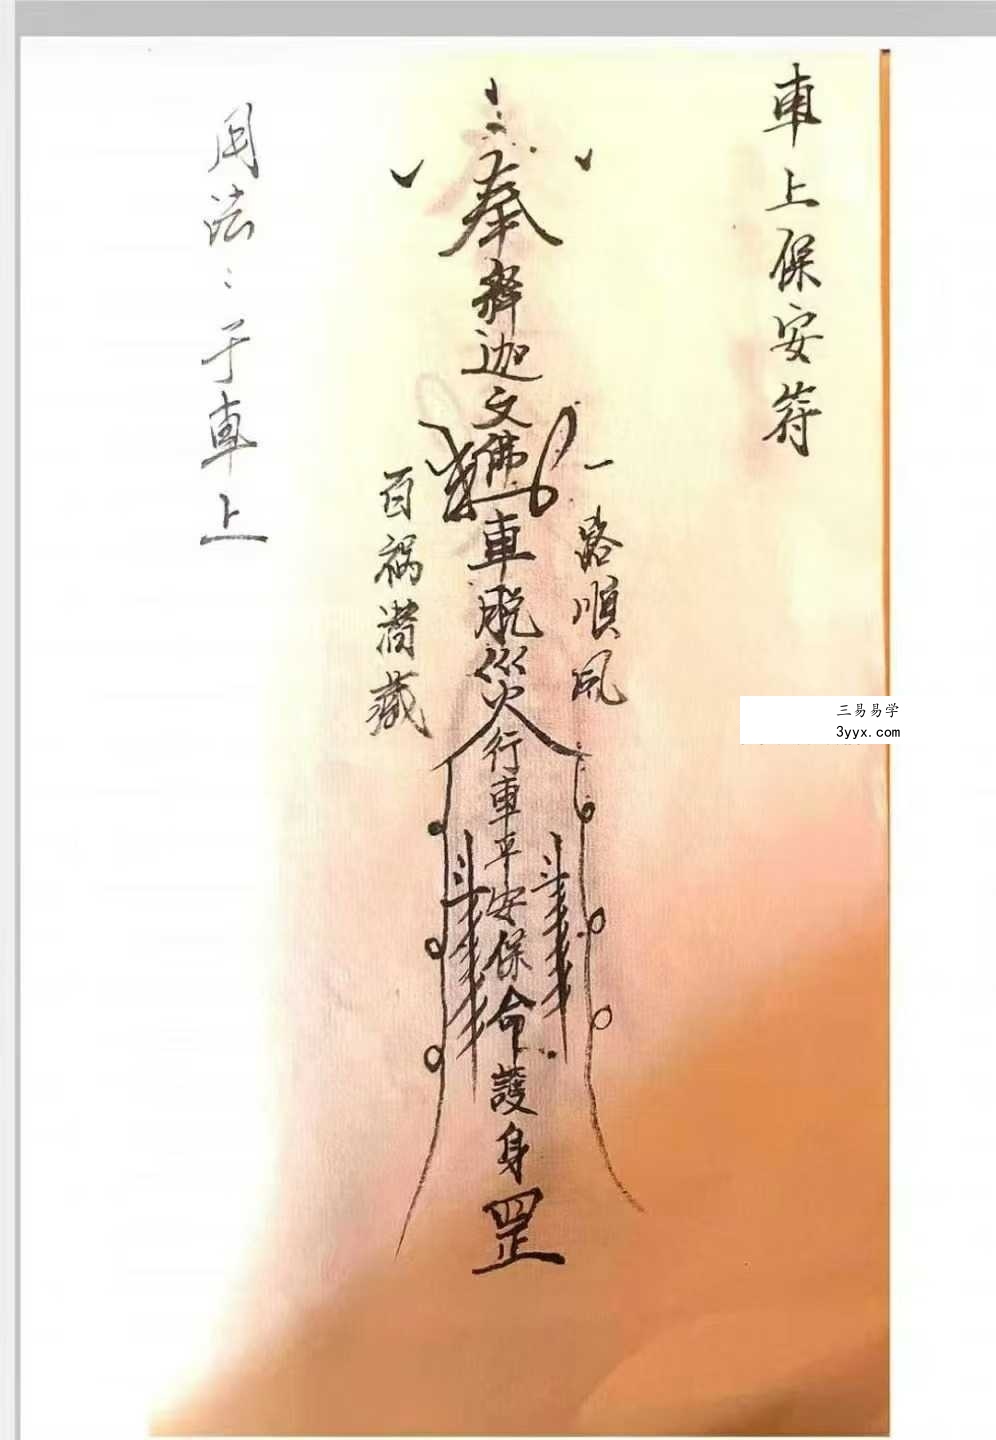 車上保安符
一路順風
奉釋迦文佛車脱災行車平安保命護身罡
斗
斗
百禍潛藏
用法:于車上
三易易学
3yyx.com